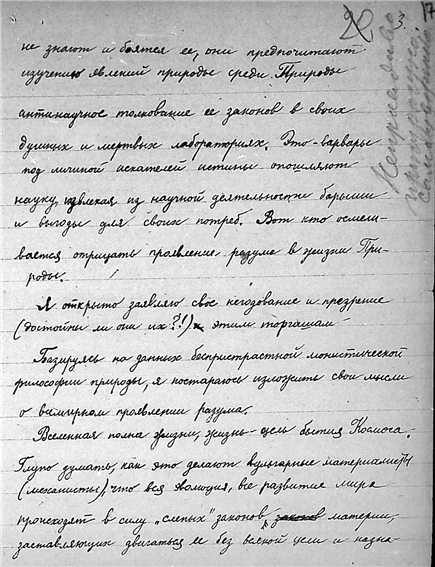 20 3. 17
не знают и боятся ее, они предпочитают
изучению явлений природы среди Природы
антинаучное толкование ее законов в своих
душных и мертвых лабораториях. Это-варвары
под личиной искателей истины опошляют
науку, извлекая из научной деятельности барыши
и выгоды для своих потреб. Вот кто осмели-
вается отрицать проявление разума в жизни При-
роды.
Я открыто заявляю свое негодование и презрение
(достойны ли они их?!) к этим торгашам
Базируясь на данных беспристрастной монистической
философии природы, я постараюсь изложить свои мысли
о всемирном проявлении разума.
Вселенная полна жизни, жизнь-цель бытия Космоса.
Глупо думать, как это делают вульгарные материалисты
(механисты), что вся эволюция, все развитие мира
происходят в силу „слепых" законов законов материи,
заставляющих двигаться ее без всякой цели и назна-